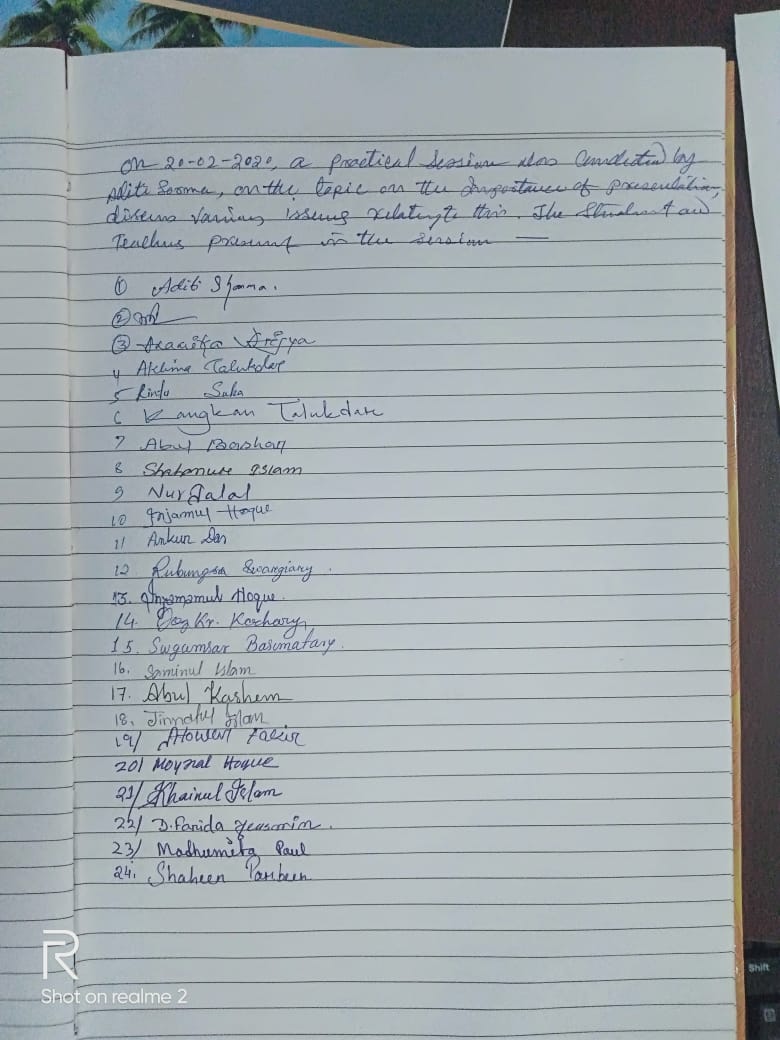 On 20-02-2020, a practical session was conducted by
Aditi Sarma, on the topic on the Importance of presentation,
discuss various issues relating to this. The Student and
Teachers present in the session —
① Aditi Sharma.
②
③
4 Aklima Talukdar
5 Rintu Saha
6 Kangkan Talukdar
7 Abul Bashar
8 Islam
9 Nur Jalal
10 Injamul Hoque
11 Ankur Das
12. Swargiary.
13. Hoque.
14. Kr. Kachary
15. Swgwmsar Basumatary.
16. Saminul Islam
17. Abul Kashem
18. Islam
19/
20/ Hoque
21/ Khainul Islam
22/ D. Farida Yeasmin.
23/ Madhumita Paul
24. Shaheen Parbeen
R
Shot on realme 2
Shift